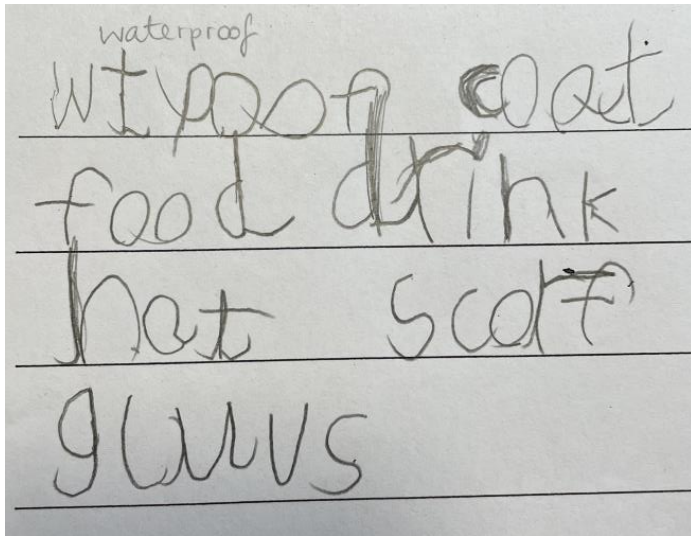 waterproof
wtpoof coat
food drink
hat scarf
gluvs